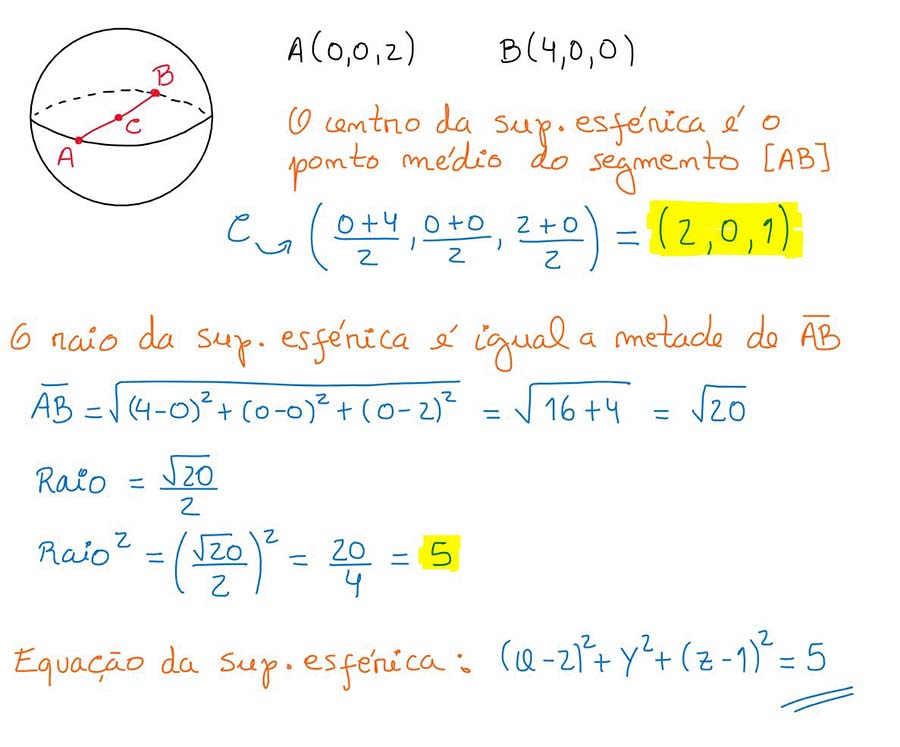 A(0,0,2) B(4,0,0)
B
C
A
O centro da sup. esférica é o
ponto médio do segmento [AB]
C ↪ ( (0+4)/2 , (0+0)/2 , (2+0)/2 ) = (2,0,1)
O raio da sup. esférica é igual a metade de A̅B̅
A̅B̅ = √((4-0)² + (0-0)² + (0-2)²) = √(16+4) = √20
Raio = √20/2
Raio² = (√20/2)² = 20/4 = 5
Equação da sup. esférica: (x-2)² + y² + (z-1)² = 5